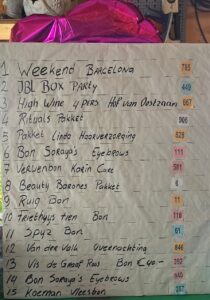 1 Weekend Barcelona 785
2 JBL Box Party 449
3 High Wine 4 pers Hof van Oostzaan 667
4 Rituals Pakket 906
5 Pakket Linda Haarverzorging 829
6 Bon Soraya's Eyebrows 111
7 Verwenbon Karin Care 581
8 Beauty Barones Pakket 6
9 Ruig Bon 11
10 Triethuys tien Bon 118
11 Spyz Bon 61
12 Van der Valk Overnachting 846
13 Vis de Graaf Bon €40.- 392
14 Bon Soraya's Eyebrows
15 Koeman Vleesbon